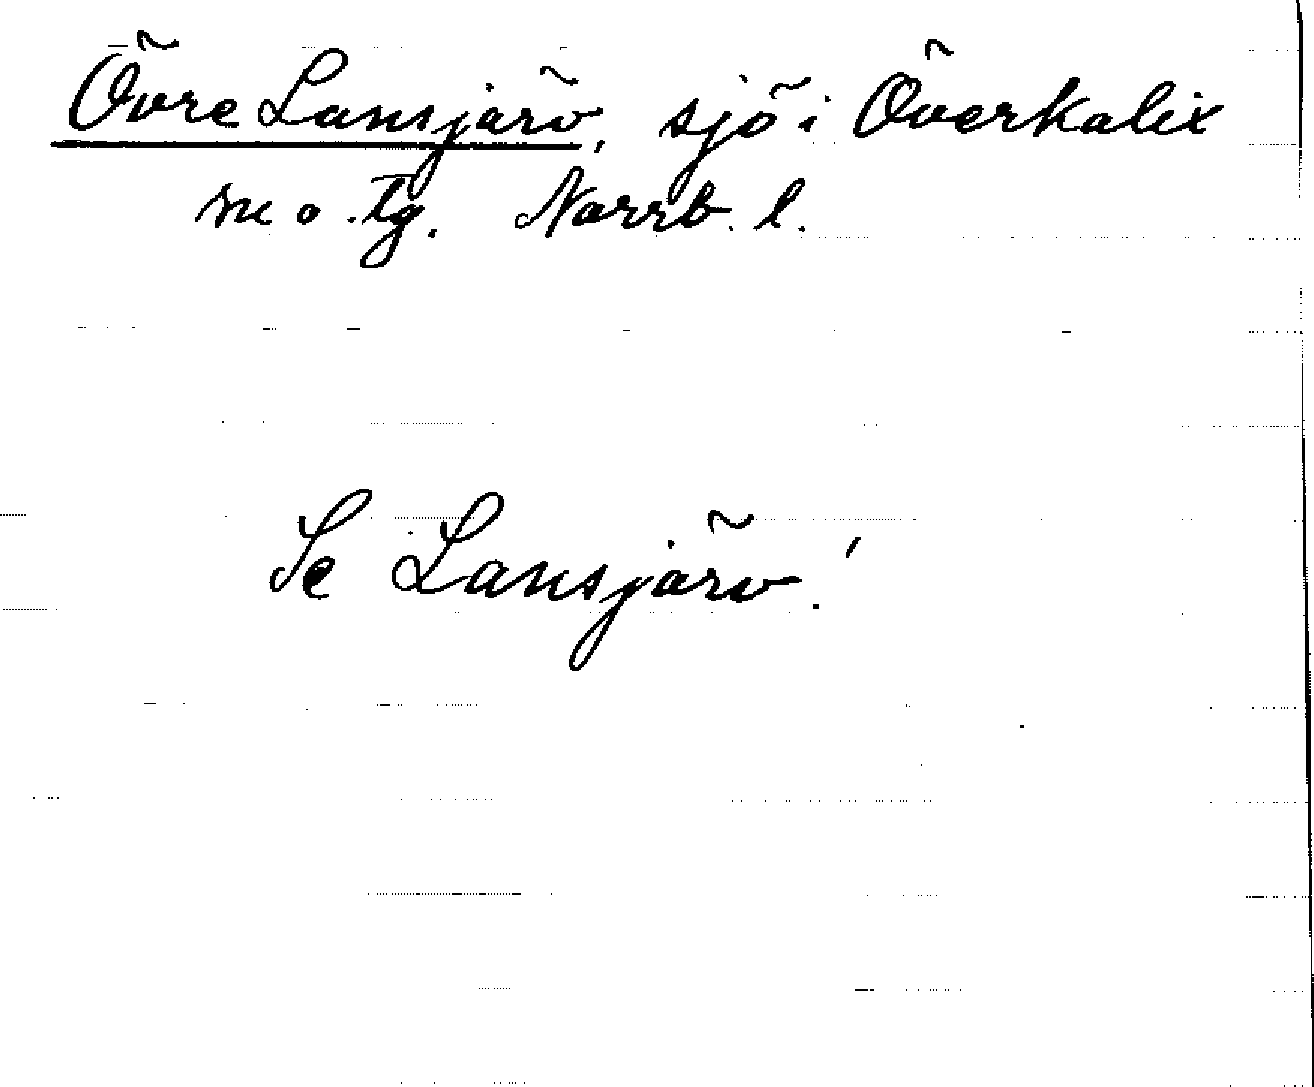 Övre Lansjärv, sjö i Överkalix
sn o. tg. Norrb. l.
Se Lansjärv!